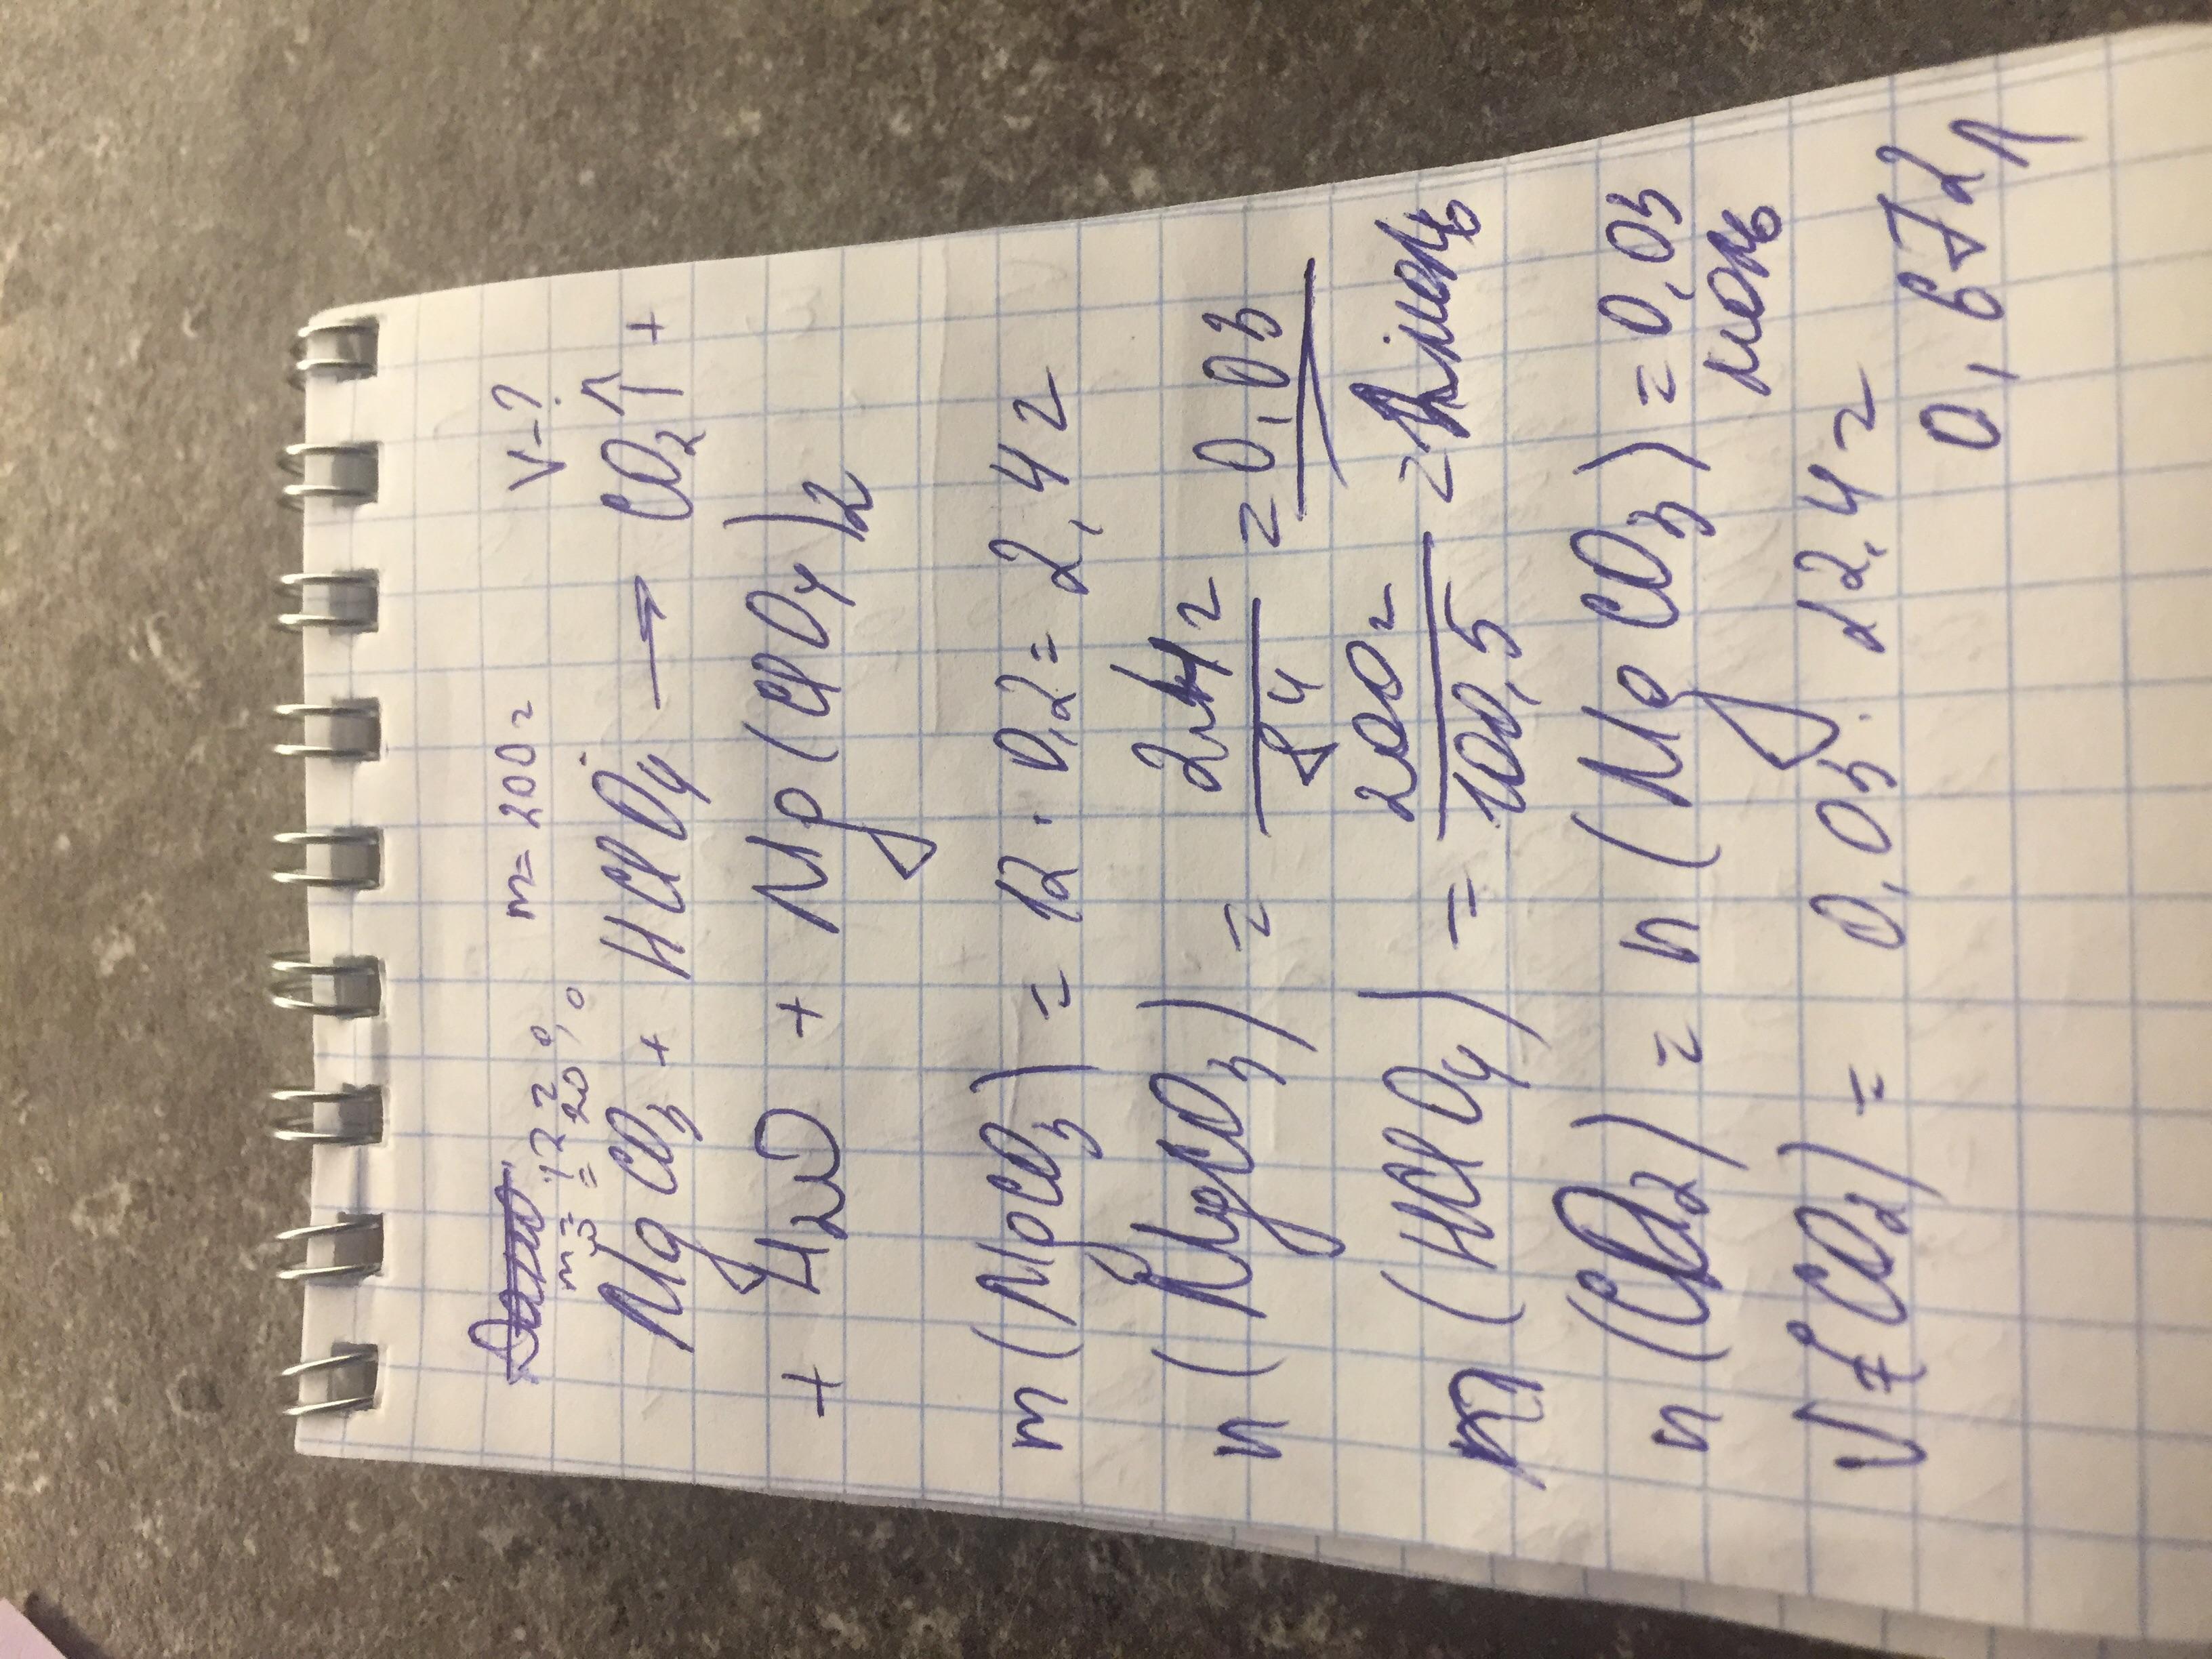 m = 12 г m = 200 г V - ?
ω = 20%
MgCO3 + HClO4 → CO2↑ +
+ H2O + Mg(ClO4)2
m (MgCO3) = 12 · 0,2 = 2,4 г
n (MgCO3) = 2,4 г / 84 = 0,03
n (HClO4) = 200 г / 100,5 = 2 моль
n (CO2) = n (MgCO3) = 0,03
моль
V (CO2) = 0,03 · 22,4 =
0,672 л